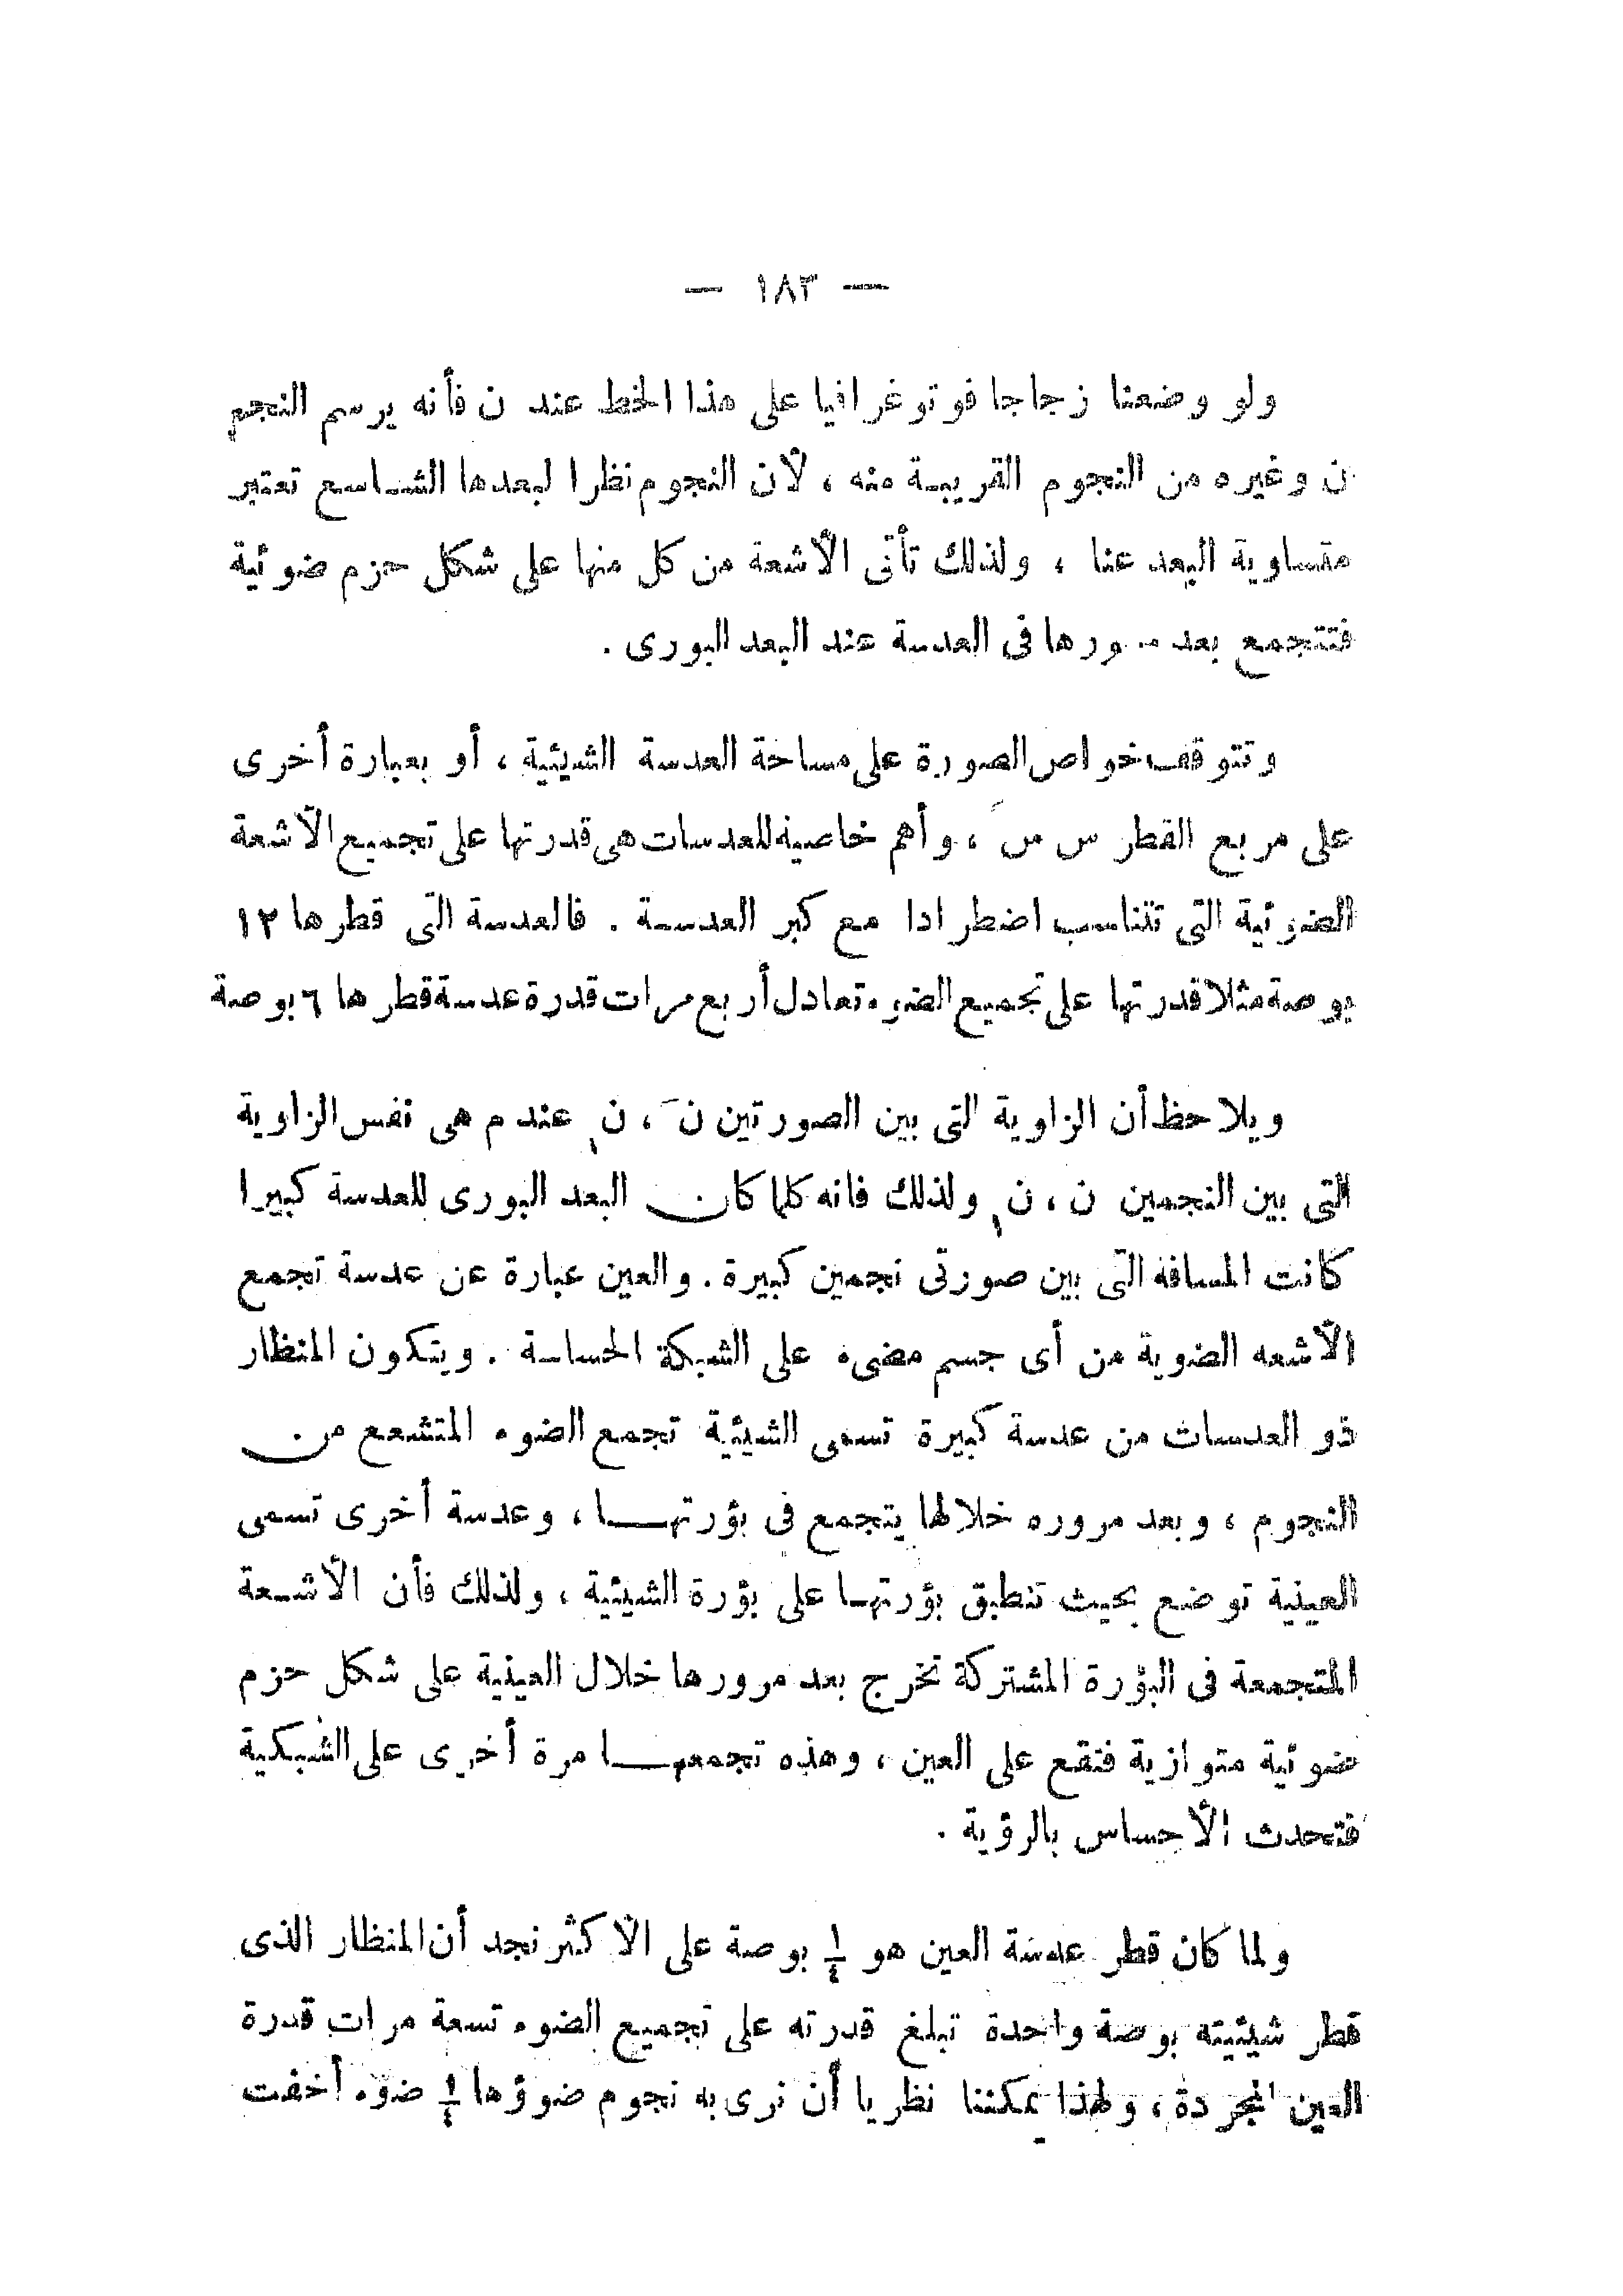 — ١٨٣ —
ولو وضعنا زجاجا فوتوغرافيا على هذا الخط عند ن فأنه يرسم النجم
ن وغيره من النجوم القريبة منه ، لأن النجوم نظرا لبعدها الشاسع تعتبر
متساوية البعد عنا ، ولذلك تأتى الأشعة من كل منها على شكل حزم ضوئية
فتتجمع بعد مرورها فى العدسة عند البعد البورى .
وتتوقف خواص الصورة على مساحة العدسة الشيئية ، أو بعبارة أخرى
على مربع القطر س سَ ، وأهم خاصية للعدسات هى قدرتها على تجميع الأشعة
الضوئية التى تتناسب اضطرادا مع كبر العدسة . فالعدسة التى قطرها ١٢
بوصة مثلا قدرتها على تجميع الضوء تعادل أربع مرات قدرة عدسة قطرها ٦ بوصة
ويلاحظ أن الزاوية التى بين الصورتين نَ ، ن١ عند م هى نفس الزاوية
التى بين النجمين ن ، ن١ ولذلك فانه كلما كان البعد البورى للعدسة كبيرا
كانت المسافة التى بين صورتى نجمين كبيرة . والعين عبارة عن عدسة تجمع
الأشعه الضوية من أى جسم مضىء على الشبكة الحساسة . ويتكون المنظار
ذو العدسات من عدسة كبيرة تسمى الشيئية تجمع الضوء المتشعع من
النجوم ، وبعد مروره خلالها يتجمع فى بؤرتهـا ، وعدسة أخرى تسمى
العينية توضع بحيث تنطبق بؤرتها على بؤرة الشيئية ، ولذلك فأن الأشعة
المتجمعة فى البؤرة المشتركة تخرج بعد مرورها خلال العينية على شكل حزم
ضوئية متوازية فتقع على العين ، وهذه تجمعهـا مرة أخرى على الشبكية
فتحدث الأحساس بالرؤية .
ولما كان قطر عدسة العين هو ١/٤ بوصة على الأكثر نجد أن المنظار الذى
قطر شيئيته بوصة واحدة تبلغ قدرته على تجميع الضوء تسعة مرات قدرة
العين المجردة ، ولهذا يمكننا نظريا أن نرى به نجوم ضوؤها ١/٤ ضوء أخفت